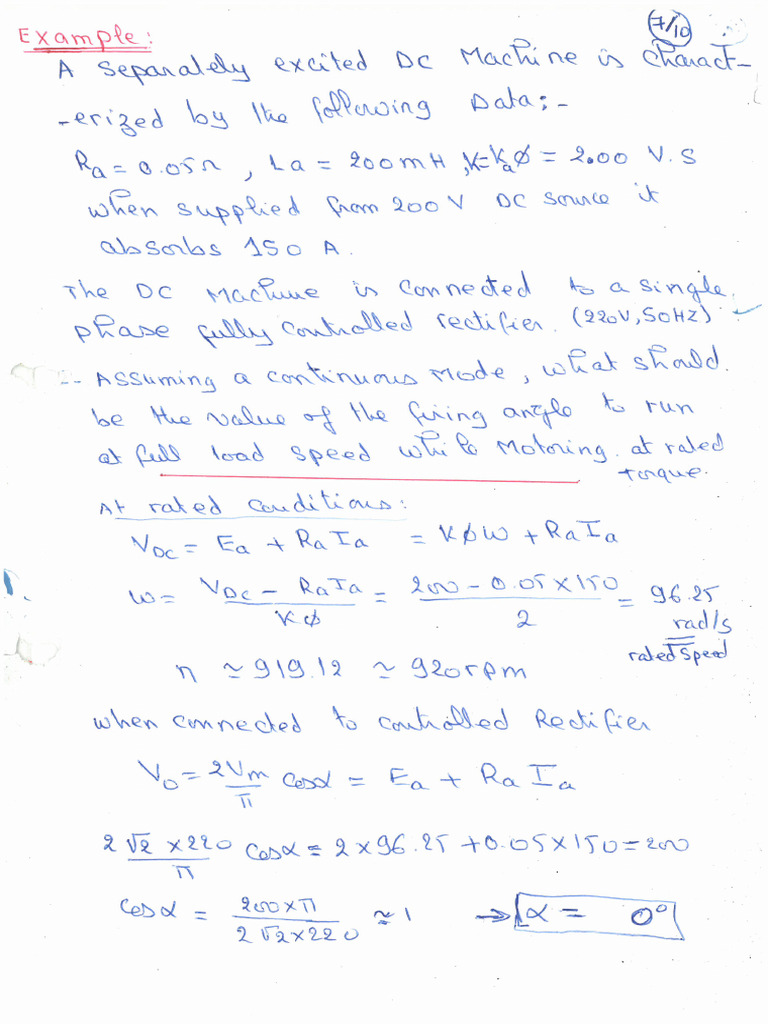 7/10
Example:
A separately excited DC Machine is charact-
-erized by the following Data:-
Ra = 0.05Ω, La = 200mH, K=Kaϕ = 2.00 V.S
when supplied from 200V DC source it
absorbs 150 A.
The DC Machine is connected to a single
phase fully controlled rectifier. (220V, 50HZ)
-- Assuming a continuous mode, what should
be the value of the firing angle to run
at full load speed while Motoring. at rated
torque.
At rated conditions:
VDC = Ea + RaIa = Kϕω + RaIa
ω = (VDC - RaIa)/(Kϕ) = (200 - 0.05×150)/2 = 96.25
rad/s
rated speed
n ≃ 919.12 ≃ 920rpm
when connected to controlled Rectifier
Vo = 2Vm/π cosα = Ea + Ra Ia
2√2 ×220/π cosα = 2×96.25 + 0.05×150 = 200
cosα = 200×π/(2√2×220) ≃ 1 → α = 0°